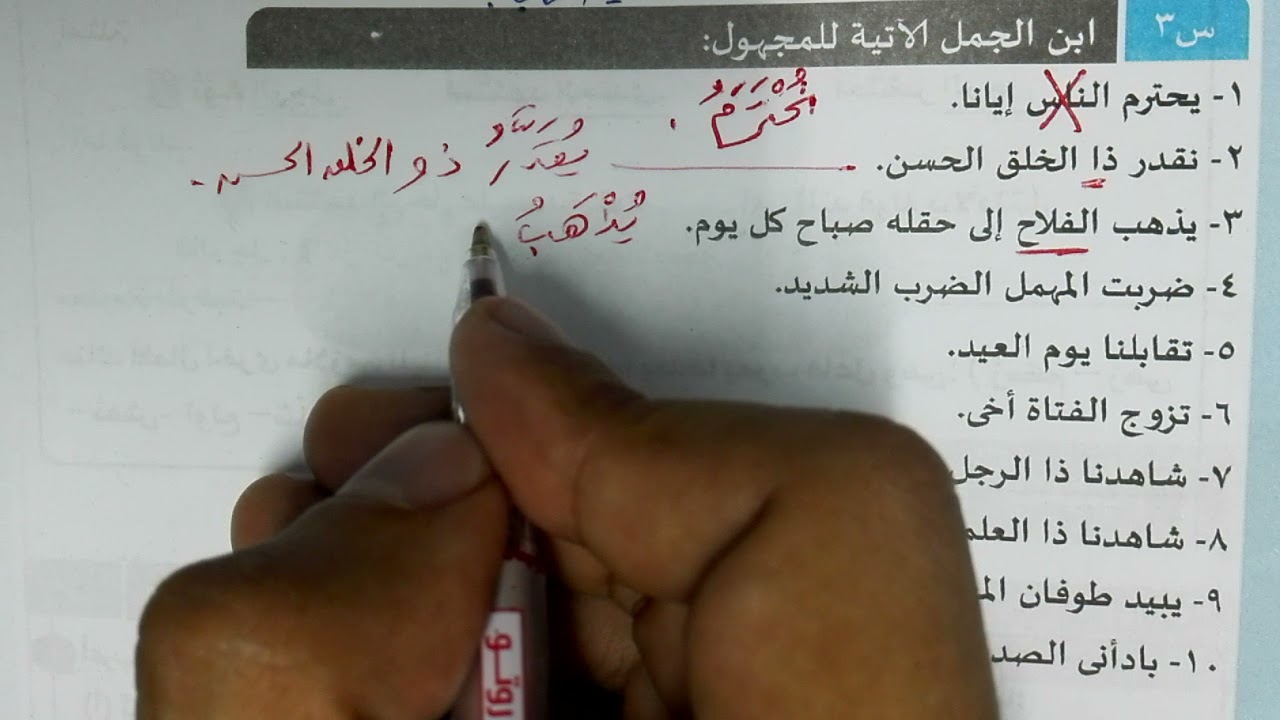 س٣ ابن الجمل الآتية للمجهول:
١- يحترم الناس إيانا. نُحْتَرَمُ .
٢- نقدر ذا الخلق الحسن. يُقَدَّرُ ذو الخلق الحسن .
٣- يذهب الفلاح إلى حقله صباح كل يوم. يُذْهَبُ
٤- ضربت المهمل الضرب الشديد.
٥- تقابلنا يوم العيد.
٦- تزوج الفتاة أخى.
٧- شاهدنا ذا الرجل
٨- شاهدنا ذا العلم
٩- يبيد طوفان
١٠- بادأنى
روتو